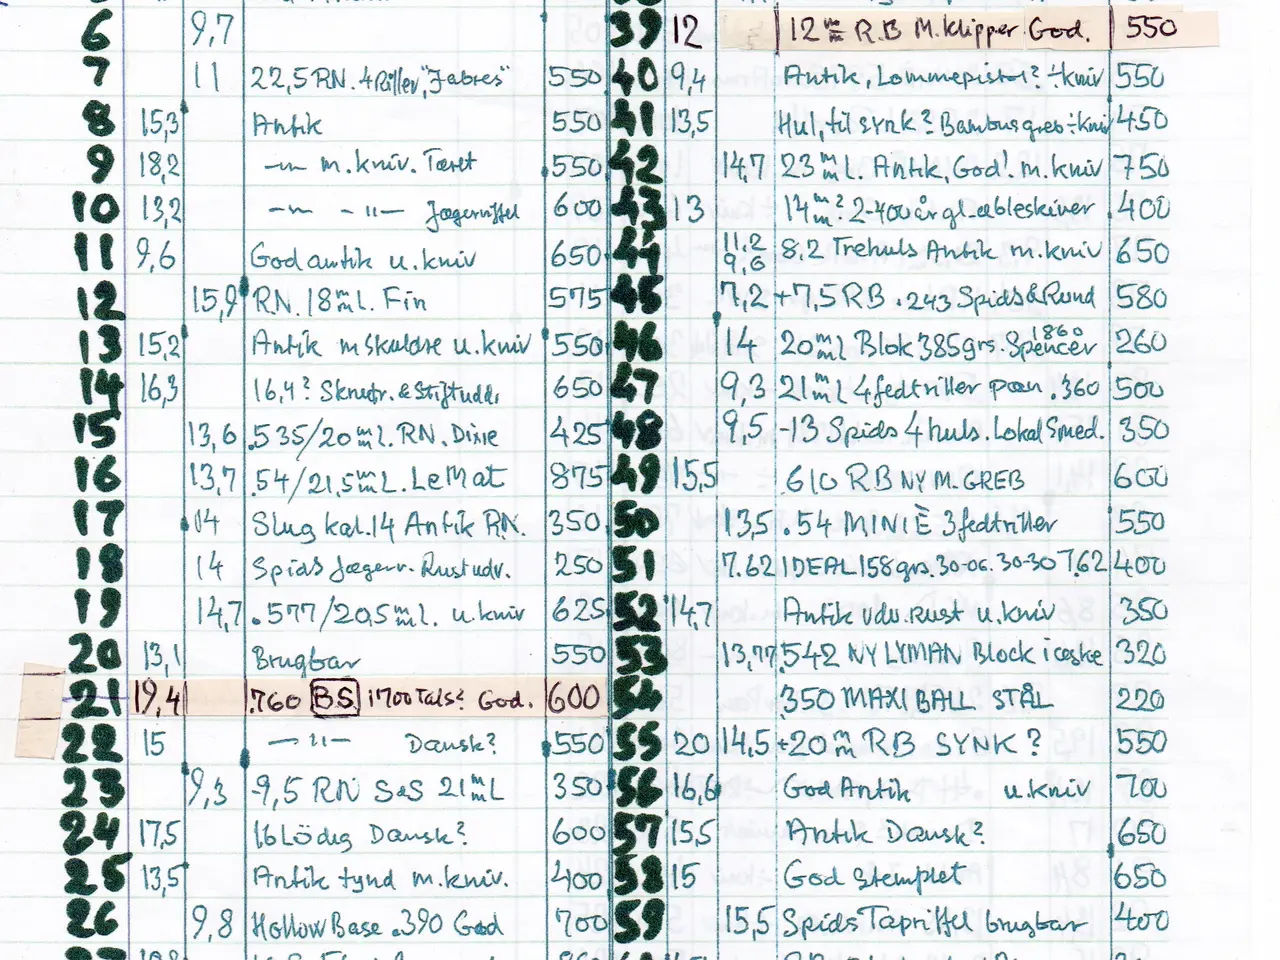 6 9,7
7 11 22,5 RN. 4 Riller, "Jabres" 550
8 15,3 Antik 550
9 18,2 —"— m. kniv. Tæret 550
10 13,2 —"— - "— Jægerriffel 600
11 9,6 God antik u. kniv 650
12 15,9 RN. 18 mm L. Fin 575
13 15,2 Antik m skuldre u. kniv 550
14 16,3 16,4? & Stiftudd. 650
15 13,6 .535/20 mm L. RN. Dixie 425
16 13,7 .54/21,5 mm L. Le Mat 875
17 14 Slug kal. 14 Antik RN. 350
18 14 Spids Jægerr. Rust udv. 250
19 14,7 .577/20,5 mm L. u. kniv 625
20 13,1 Brugbar 550
21 19,4 .760 B.S. 1700 Tals? God. 600
22 15 —"— Dansk? 550
23 9,3 -9,5 RN S&S 21 mm L 350
24 17,5 16 Lödig Dansk? 600
25 13,5 Antik tynd m. kniv. 400
26 9,8 Hollow Base .390 God 700
39 12 12 mm R.B M. Klipper God. 550
40 9,4 Antik, Lommepistol? ÷kniv 550
41 13,5 Hul, til synk? Bambusgreb ÷kniv 450
42 14,7 23 mm L. Antik, God! m. kniv 750
43 13 14 mm? 2-400 år gl. æbleskiver. 400
44 11,2 9,6 8,2 Trehuls Antik m. kniv 650
45 7,2 +7,5 RB .243 Spids & Rund 580
46 14 20 mm L Blok 385 grs. Spencer 1860 260
47 9,3 21 mm L 4 fedtriller .360 500
48 9,5 -13 Spids 4 huls. Lokal Smed. 350
49 15,5 .610 RB NY M. GREB 600
50 13,5 .54 MINIÈ 3 fedtriller 550
51 7.62 IDEAL 158 grs. 30-06. 30-30 7.62 400
52 14,7 Antik udv. Rust u. kniv 350
53 13,77 .542 NY LYMAN Block i æske 320
54 .350 MAXI BALL STÅL 220
55 20 14,5 +20 mm RB SYNK? 550
56 16,6 God Antik u. kniv 700
57 15,5 Antik Dansk? 650
58 15 God stemplet 650
59 15,5 Spids Tapriffel brugbar 400